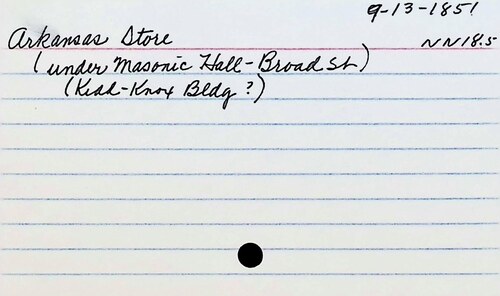 9-13-1851
Arkansas Store NN18.5
(under Masonic Hall-Broad St.)
(Kidd-Knox Bldg ?)